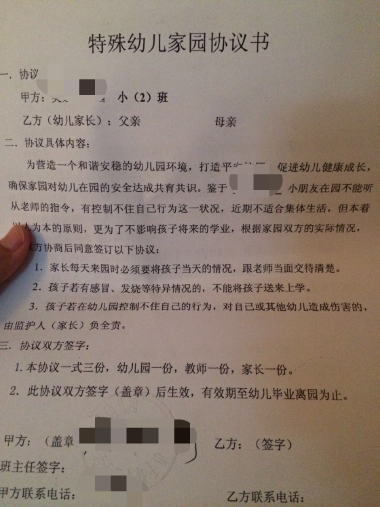 特殊幼儿家园协议书
一、协议
甲方： 小（2）班
乙方（幼儿家长）：父亲 母亲
二、协议具体内容：
为营造一个和谐安稳的幼儿园环境，打造平 促进幼儿健康成长，
确保家园对幼儿在园的安全达成共育共识。鉴于 小朋友在园不能听
从老师的指令，有控制不住自己行为这一状况，近期不适合集体生活，但本着
以人为本的原则，更为了不影响孩子将来的学业，根据家园双方的实际情况，
双方协商后同意签订以下协议：
1．家长每天来园时必须要将孩子当天的情况，跟老师当面交待清楚。
2．孩子若有感冒、发烧等特异情况的，不能将孩子送来上学。
3．孩子若在幼儿园控制不住自己的行为，对自己或其他幼儿造成伤害的，
由监护人（家长）负全责。
三、协议双方签字：
1.本协议一式三份，幼儿园一份，教师一份，家长一份。
2．此协议双方签字（盖章）后生效，有效期至幼儿毕业离园为止。
甲方：（盖章 ） 乙方：（签字）
班主任签字：
甲方联系电话： 乙方联系电话：